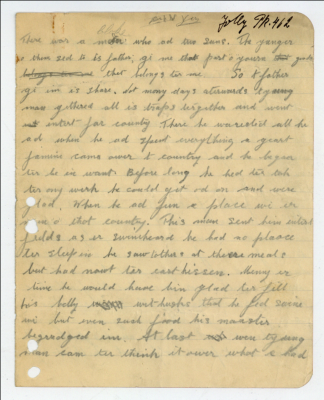 Folly Pk. 462
There was a who ad two sans. The yanger
o them sed to is father, gi me that part o yours
that belongs ter me. So t father
gi im is share. Not many days afterwards t young
man gethered all is traps tergether and went
intert far country. There he wareskd all he
ad when he ad spent everything a great
famine came ower t country and he began
ter be in want. Before long he hed ter tak
ter ony work he could get od on and were
glad. When he ad fun a place wi er
man o that country. This man sent him intert
fields as er swineherd he had no plaace
ter sleep in he saw tothers at theere meals
but had nowt ter eart hissen. Meny er
time he would have bin glad ter fill
his belly wit husks that he fed swine
wi but even such food his maaster
begrudged im. At last t young
man cam ter think it ower what e had